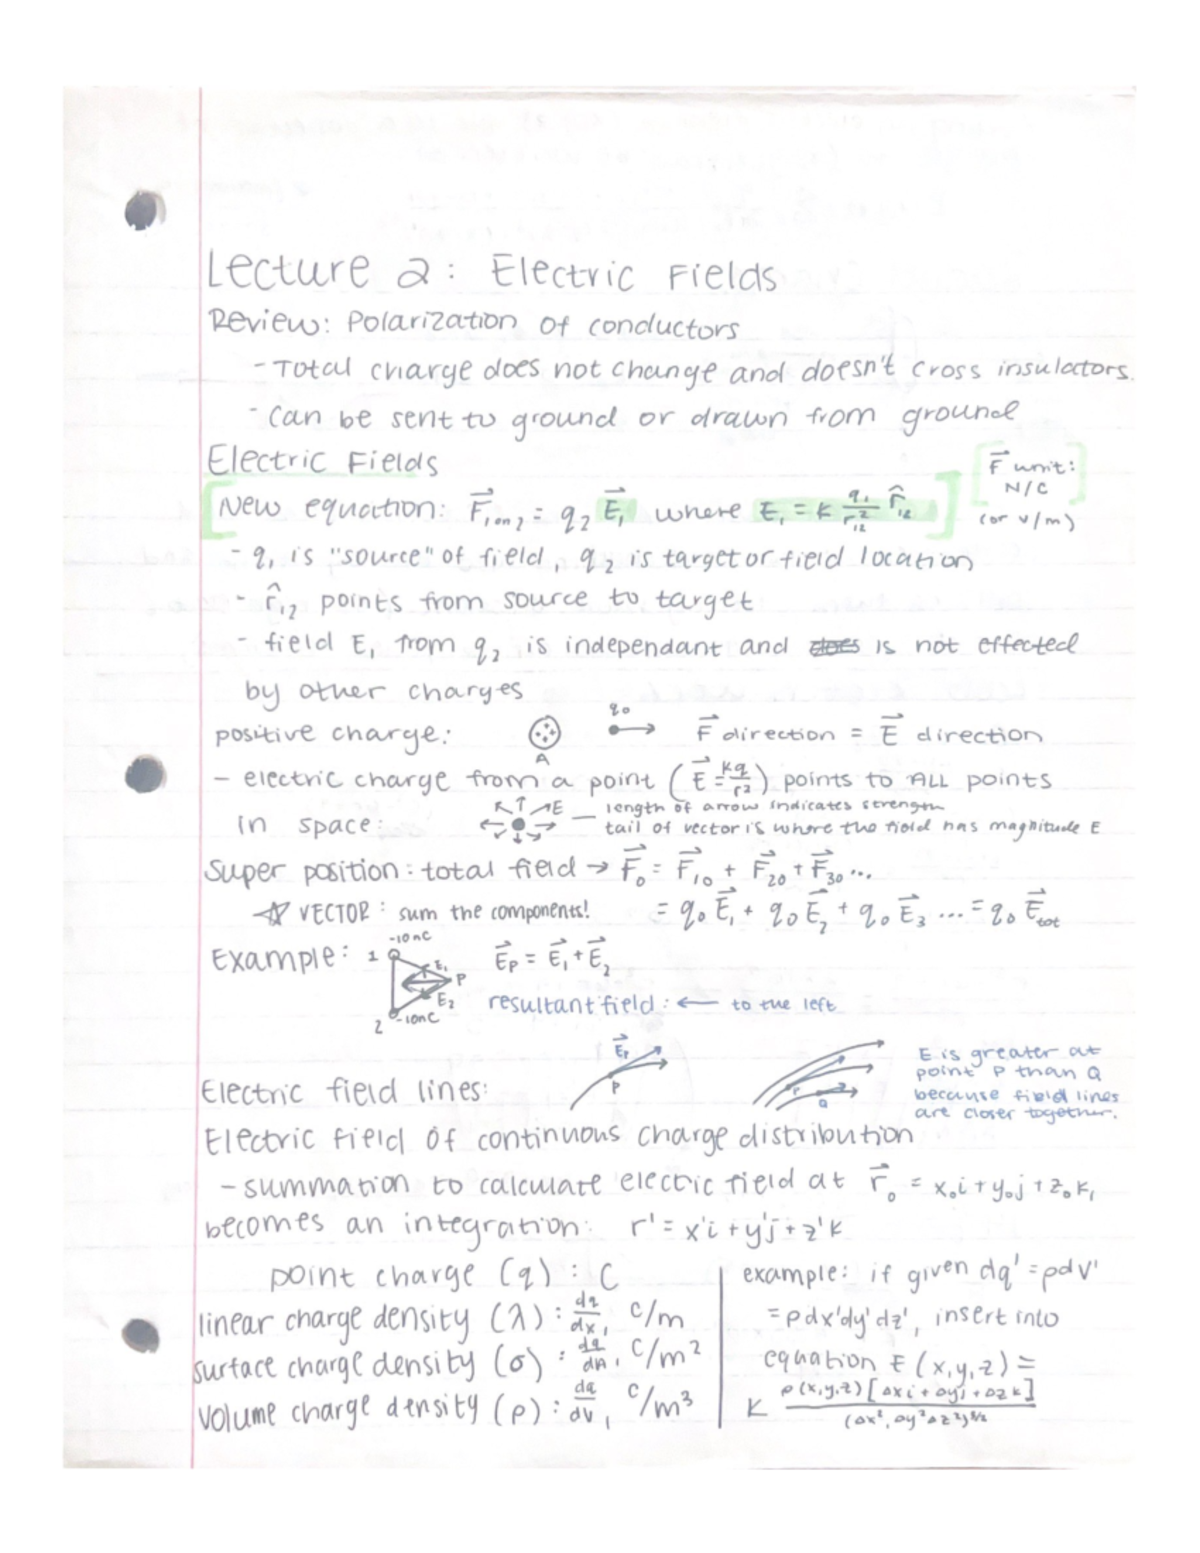 Lecture 2: Electric Fields
Review: Polarization of conductors
- Total charge does not change and doesn't cross insulators.
- Can be sent to ground or drawn from ground
Electric Fields
[New equation: F⃗₁ₒₙ₂ = q₂ E⃗₁ where E₁ = K q₁/r₁₂² r̂₁₂]
[F⃗ unit:
N/C]
(or V/m)
- q₁ is "source" of field, q₂ is target or field location
- r̂₁₂ points from source to target
- field E₁ from q₂ is independant and does is not effected
by other charges
positive charge: A q₀ F⃗ direction = E⃗ direction
- electric charge from a point (E⃗ = Kq/r²) points to ALL points
in space: E — length of arrow indicates strength
tail of vector is where the field has magnitude E
Super position: total field → F⃗₀ = F⃗₁₀ + F⃗₂₀ + F⃗₃₀ ...
☆ VECTOR: sum the components! = q₀ E⃗₁ + q₀ E⃗₂ + q₀ E⃗₃ ... = q₀ E⃗tot
Example: 1 -10nC E₁ P E₂ 2 -10nC E⃗p = E⃗₁ + E⃗₂
resultant field: ← to the left
Electric field lines: E⃗p P P Q
E is greater at
point P than Q
because field lines
are closer together.
Electric field of continuous charge distribution
- summation to calculate electric field at r⃗₀ = x₀i + y₀j + z₀k,
becomes an integration: r' = x'i + y'j + z'k
point charge (q): C
linear charge density (λ): dq/dx, C/m
surface charge density (σ): dq/dA, C/m²
volume charge density (ρ): dq/dV, C/m³
example: if given dq' = ρdV'
= ρdx'dy'dz', insert into
equation E(x,y,z) =
K ρ(x,y,z)[Δxi + Δyj + Δzk]/(Δx², Δy² Δz²)³/²